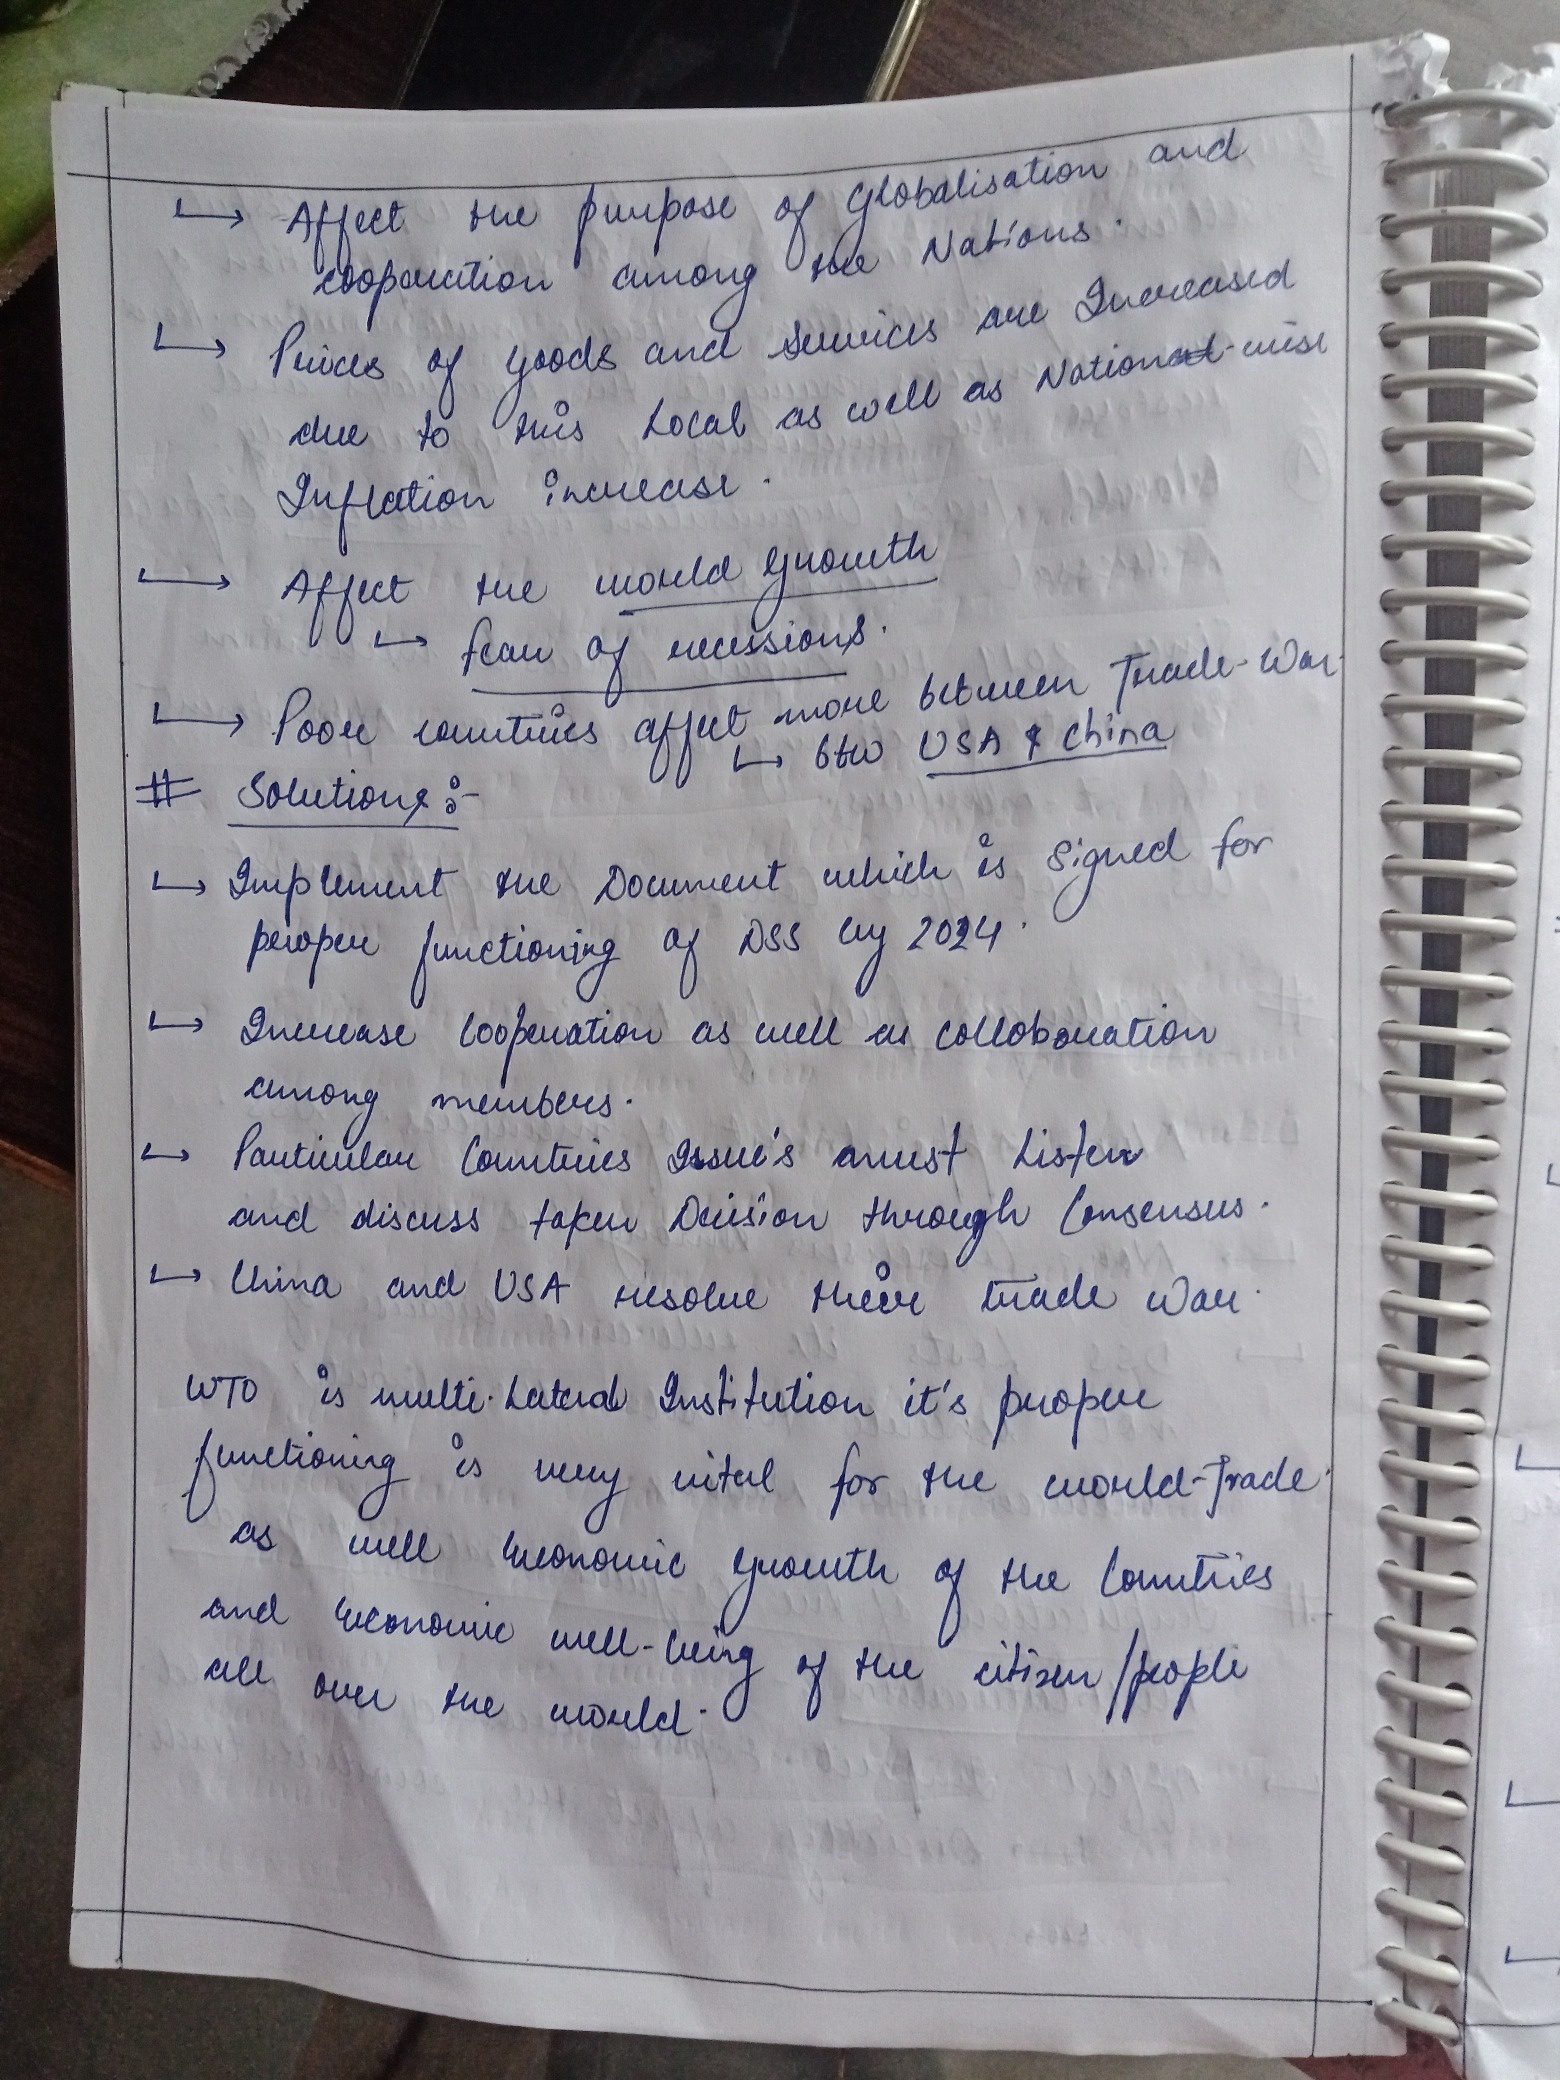 ↳ Affect the purpose of Globalisation and
cooperation among the Nations.
↳ Prices of goods and Services are Increased
due to this Local as well as Nation-wise
Inflation increase.
↳ Affect the world Growth
↳ fear of recessions.
↳ Poor countries affect more between Trade-War
↳ btw USA & China
# Solutions:-
↳ Implement the Document which is Signed for
proper functioning of DSS by 2024.
↳ Increase Cooperation as well as collaboration
among members.
↳ Particular Countries Issue's must Listen
and discuss taken Decision through Consensus.
↳ China and USA resolve their trade war.
WTO is multi-Lateral Institution it's proper
functioning is very vital for the world-Trade
as well Economic growth of the Countries
and Economic well-being of the citizen/people
all over the world.